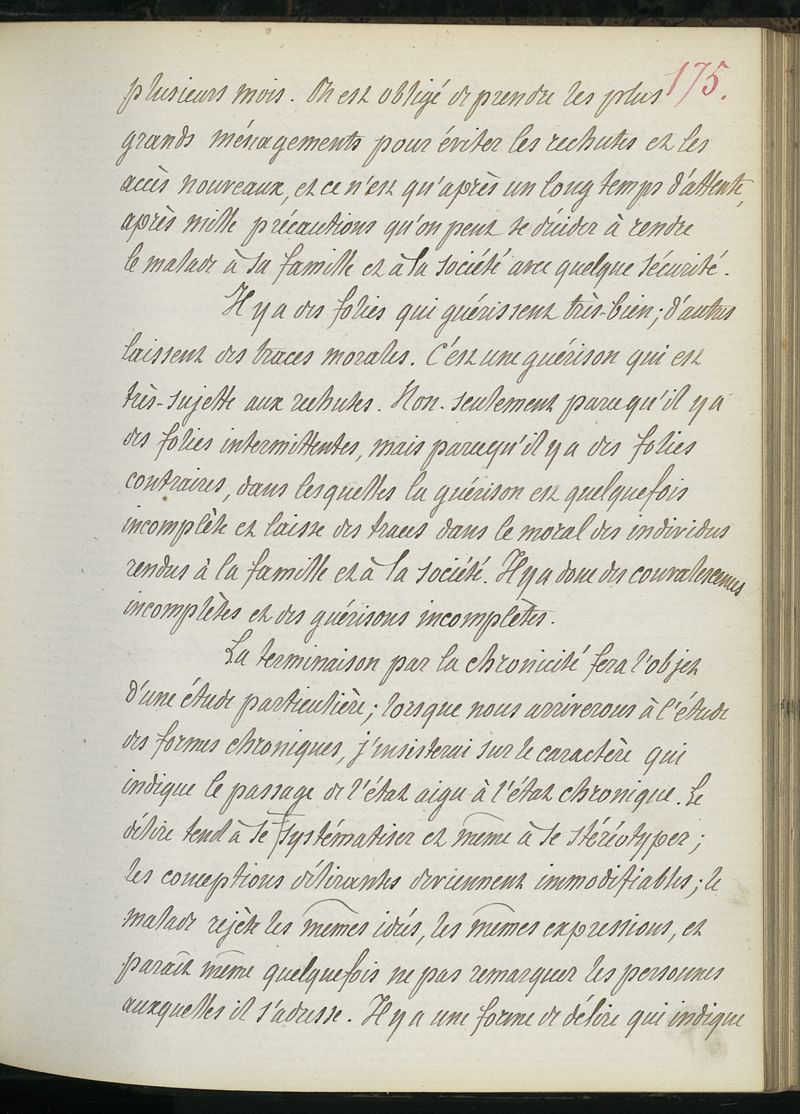 175.
plusieurs mois. On est obligé de prendre les plus
grands ménagements pour éviter les rechutes et les
accès nouveaux, et ce n'est qu'après un long temps d'attente,
après mille précautions qu'on peut se décider à rendre
le malade à sa famille et à la société avec quelque sécurité.
Il y a des folies qui guérissent très-bien; d'autres
laissent des traces morales. C'est une guérison qui est
très-sujette aux rechutes. Non-seulement parce qu'il y a
des folies intermittentes, mais parcequ'il y a des folies
contraires, dans lesquelles la guérison est quelquefois
incomplète et laisse des traces dans le moral des individus
rendus à la famille et à la société. Il y a donc des convalescences
incomplètes et des guérisons incomplètes.
La terminaison par la chronicité fera l'objet
d'une étude particulière; lorsque nous arriverons à l'étude
des formes chroniques, j'insisterai sur le caractère qui
indique le passage de l'état aigu à l'état chronique. Le
délire tend à se systématiser et même à se stéréotyper;
les conceptions délirantes deviennent immodifiables; le
malade rejète les mêmes idées, les mêmes expressions, et
paraît même quelquefois ne pas remarquer les personnes
auxquelles il s'adresse. Il y a une forme de délire qui indique